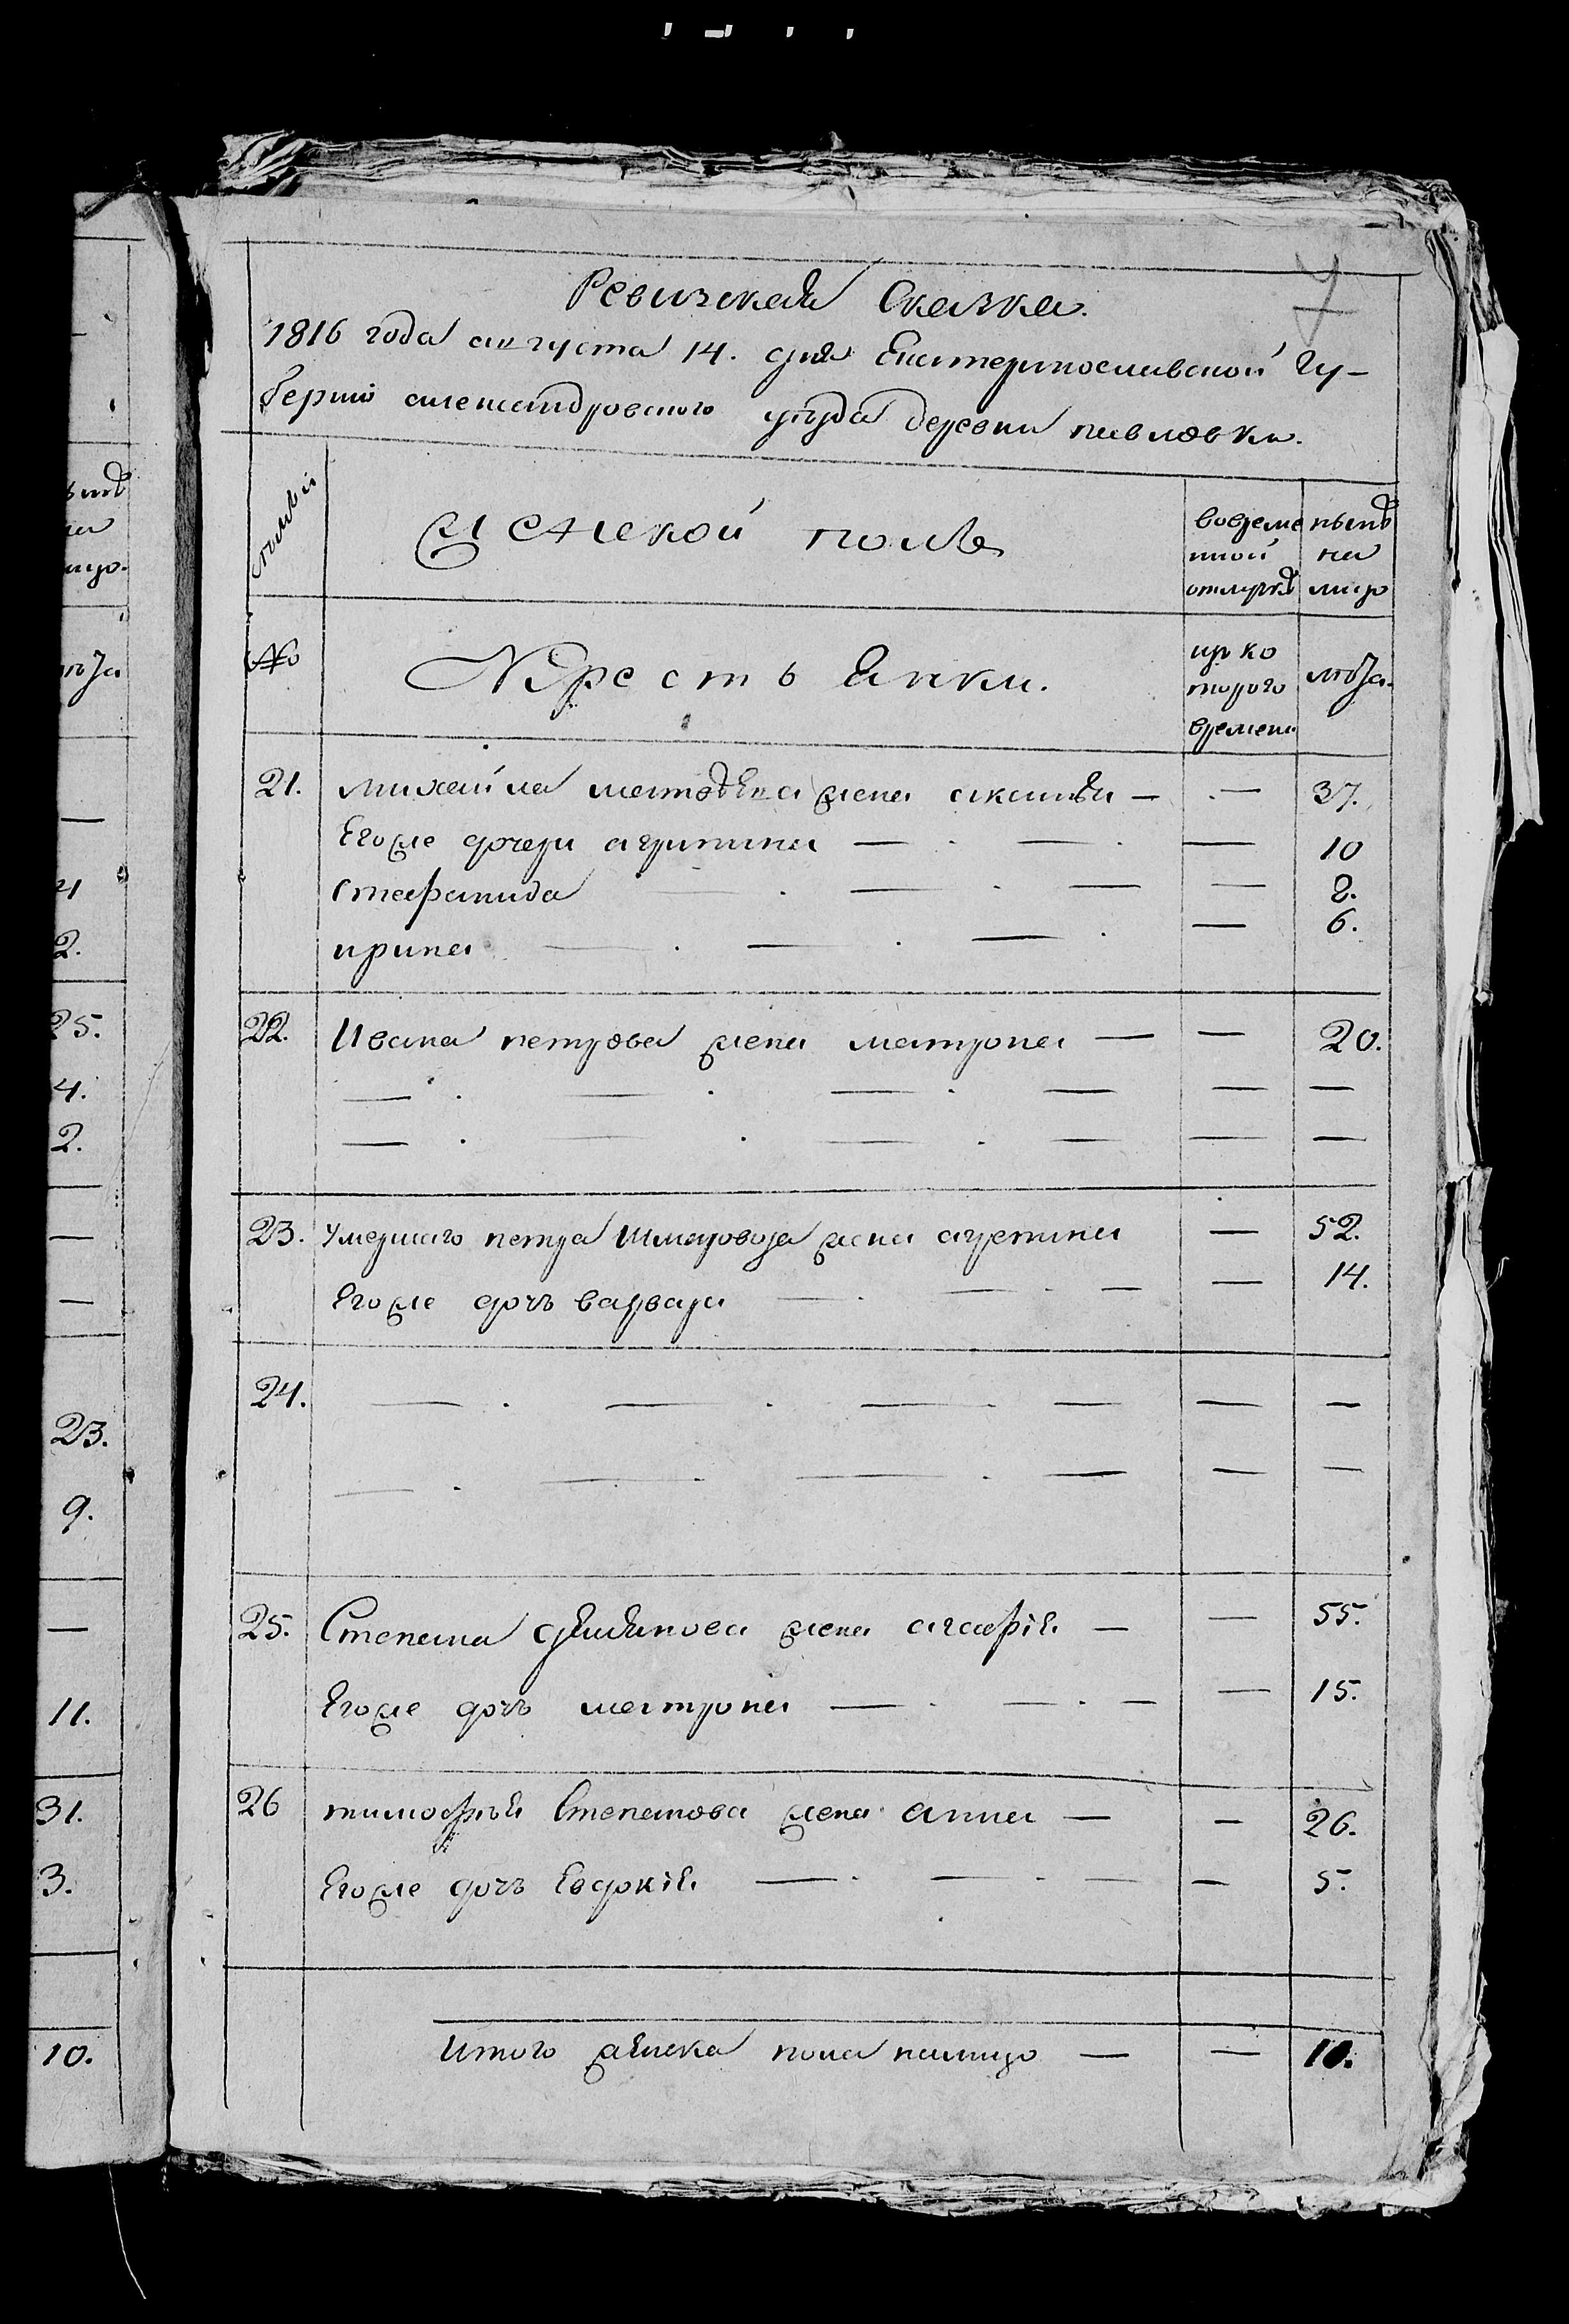 7
Ревизская Сказка.
1816 года августа 14. дня Екатеринославской гу-
берніи александровского уѣзда деревни павловки.
семьи
Женской полъ
вовреме
нной
отлучкѣ
нынѣ
на
лицо
№
Крестьянки.
изъ ко
торого
времени
лѣта.
21. михайла матвѣева жена аксинья — — 37.
Егоже дочери агрипина — — — 10
стефанида — — — — 8.
ирина — — — — 6.
22. Ивана петрова жена матрона — — 20.
— — — — — —
— — — — — —
23. умершаго петра жена агрепина — 52.
Егоже дочь варвара — — — — 14.
24. — — — — — —
— — — — — —
25. Степана жена агафія — — 55.
Егоже дочь матрона — — — — 15.
26 тимофѣя Степанова жена анна — — 26.
Егоже дочь Евдокія — — — — 5.
Итого женска пола налицо — — 10.
ынѣ
на
ицо.
лѣта
—
4
2.
25.
4.
2.
—
—
23.
9.
—
11.
31.
3.
10.